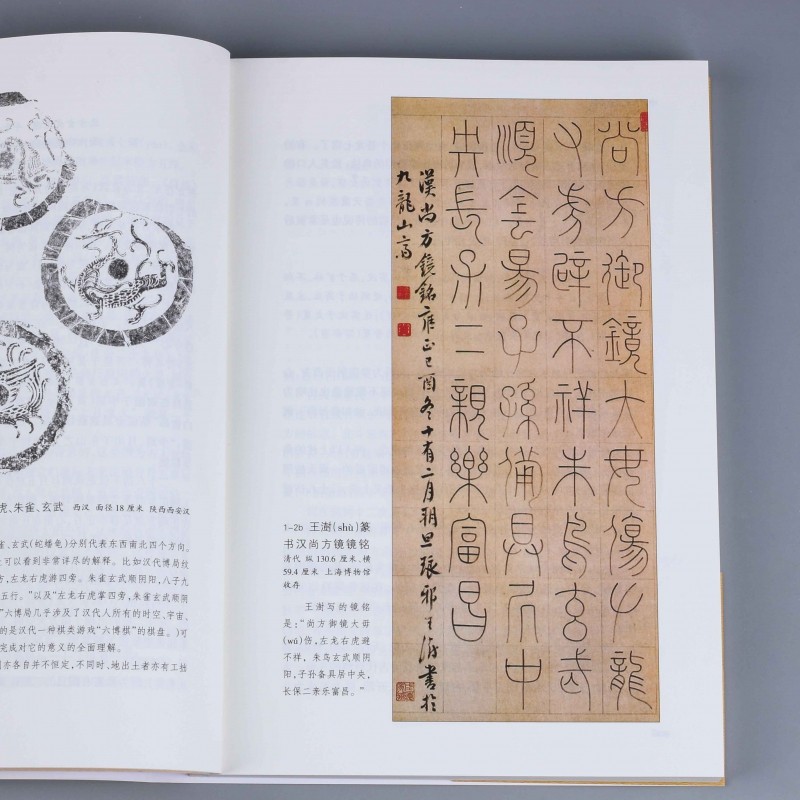 虎、朱雀、玄武 西汉 面径18厘米 陕西西安汉
雀、玄武(蛇蟠龟)分别代表东西南北四个方向。
可以看到非常详尽的解释。比如汉代博局纹
方,左龙右虎游四旁。朱雀玄武顺阴阳,八子九
五行。”以及“左龙右虎掌四旁,朱雀玄武顺阴
”六博局几乎涉及了汉代人所有的时空、宇宙、
的是汉代一种棋类游戏“六博棋”的棋盘。)可
完成对它的意义的全面理解。
则亦各自并不恒定,不同时、地出土者亦有工拙
1-2b 王澍(shù)篆
书汉尚方镜镜铭
清代 纵130.6厘米、横
59.4厘米 上海博物馆
收存
王澍写的镜铭
是:“尚方御镜大毋
(wú)伤,左龙右虎避
不祥,朱鸟玄武顺阴
阳,子孙备具居中央,
长保二亲乐富昌。”
尚方御鏡大毋傷左龍
右虎辟不祥朱鳥玄武
順陰陽子孫備具居中
央長保二親樂富昌
漢尚方鏡銘雍正己酉冬十有二月朔旦琅邪王澍書於
九龍山齋